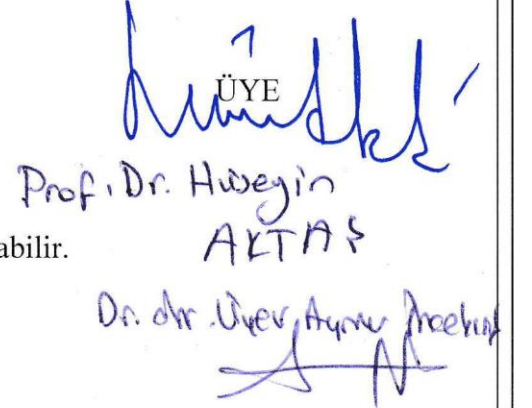 ÜYE
Prof. Dr. Hüseyin
AKTAŞ
abilir.
Dr. Öğr. Üyesi